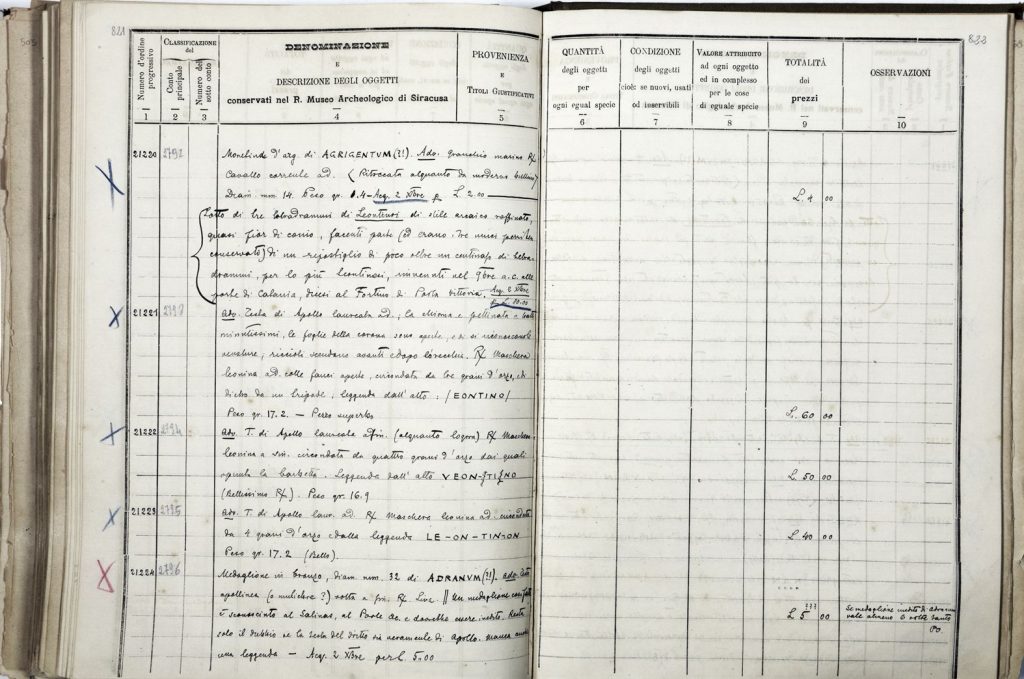 821
Numero d'ordine progressivo
CLASSIFICAZIONE
del
Conto principale
Numero del sotto conto
DENOMINAZIONE
E
DESCRIZIONE DEGLI OGGETTI
conservati nel R. Museo Archeologico di Siracusa
PROVENIENZA
E
TITOLI GIUSTIFICATIVI
1 2 3 4 5
21220 2792 d'arg. di AGRIGENTUM (?!). Adv. granchio marino R/.
Cavallo corrente ad. (Ritoccato alquanto da moderno
Diam. mm. 14. Peso gr. 0.4 – Acq. 2 Xbre p. L. 2.00
Lotto di tre tetradrammi di Leontinoi di stile arcaico raffinato,
quasi fior di conio, facenti parte (ed erano
conservati) di un ripostiglio di poco oltre un centinaio di tetra-
drammi, per lo più leontinoi, rinvenuti nel 9bre a.c. alle
porte di Catania, dicesi al Fortino di Porta Vittoria. Acq. 2 Xbre
21221 2793 Adv. Testa di Apollo laureata ad.; la chioma è pettinata e
minutissimi, le foglie della corona sono aperte, e di si riconoscono le
nervature; riccioli scendono avanti e dopo l'orecchio. R/. Maschera
leonina ad. colle fauci aperte, circondata da tre grani d'orzo, e di
dietro da un tripode, leggenda dall'alto: /EONTINO/
Peso gr. 17.2. – Pezzo superbo
21222 2794 Adv. T. di Apollo laureata a sin. (alquanto logora) R/. Maschera
leonina a sin. circondata da quattro grani d'orzo dai quali
spunta la barbetta. Leggenda dall'alto VEON-TINO
(Bellissimo R/.) Peso gr. 16.9
21223 2795 Adv. T. di Apollo laur. ad. R/. Maschera leonina ad. circondata
da 4 grani d'orzo e dalla leggenda LE-ON-TIN-ON
Peso gr. 17.2 (Bello).
21224 2796 Medaglione in bronzo, diam. mm. 32 di ADRANVM (?!). Adv. Testa
apollinea (o muliebre?) volta a sin. R/. Lira. // Un medaglione
è sconosciuto al Salinas, al Poole &c. e dovrebbe essere inedito. Resta
solo il dubbio se la testa del dritto sia veramente di Apollo. Manca
una leggenda – Acq. 2 Xbre per L. 5.00
822
QUANTITÀ
degli oggetti
per
ogni egual specie
CONDIZIONE
degli oggetti
cioè: se nuovi, usati
od inservibili
VALORE ATTRIBUITO
ad ogni oggetto
ed in complesso
per le cose
di eguale specie
TOTALITÀ
dei
prezzi
OSSERVAZIONI
6 7 8 9 10
L. 4 00
L. 60 00
L. 50 00
L. 40 00
???
L. 5 00
Se medaglione inedito di Adranum
vale almeno 5 volte tanto